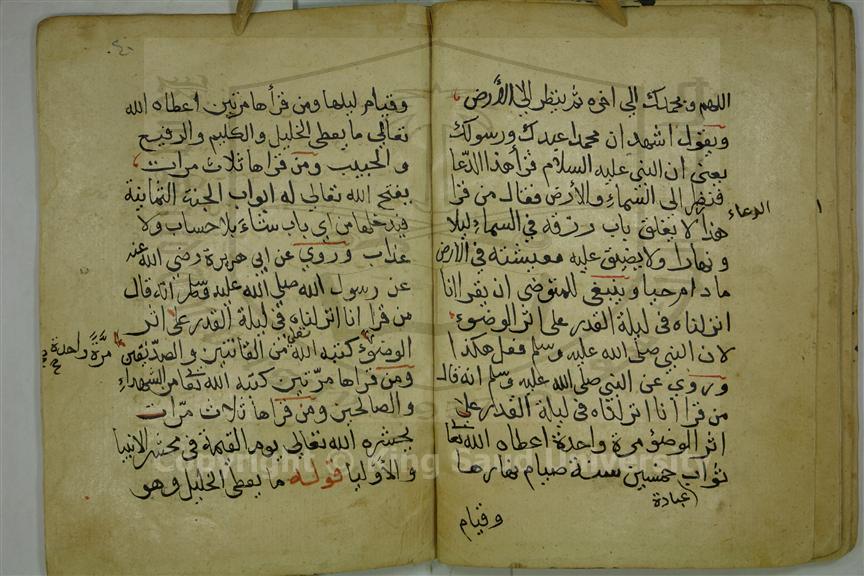 اللهم وبحمدك الى اخره ثم ينظر الى الأرض
ويقول اشهد ان محمدا عبدك ورسولك
يعنى ان النبي عليه السلام قرأ هذا الدعا
فنظر الى السماء والأرض فقال من قرا
الدعاء
هذا لا يغلق باب رزقه في السماء ليلا
ونهارا ولا يضيق عليه معيشته في الأرض
ما دام حيا وينبغي للمتوضي ان يقرا انا
انزلناه في ليلة القدر على اثر الوضوء
لان النبي صلى الله عليه وسلم فعل هكذا
وروي عن النبي صلى الله عليه وسلم انه قال
من قرا انا انزلناه في ليلة القدر على
اثر الوضوء مرة واحدة اعطاه الله تعالى
ثواب خمسين سنة صيام نهارها
عبادة
وقيام
٤٠
وقيام ليلها ومن قرأها مرتين اعطاه الله
تعالى ما يعطى الخليل والكليم والرفيع
والحبيب ومن قراها ثلاث مرات
يفتح الله تعالى له ابواب الجنة الثمانية
فيدخلها من اي باب شاء بلا حساب ولا
عذاب وروي عن ابي هريرة رضي الله عنه
عن رسول الله صلى الله عليه وسلم انه قال
من قرا انا انزلناه في ليلة القدر على اثر
الوضوء كتبه الله تعالى من القانتين والصديقين
مرة واحدة
ومن قراها مرتين كتبه الله تعالى من الشهداء
والصالحين ومن قراها ثلاث مرات
يحشره الله تعالى يوم القيمة في محشر الانبيا
والأوليا قوله ما يعطى الخليل وهو
Copyright © King Saud University